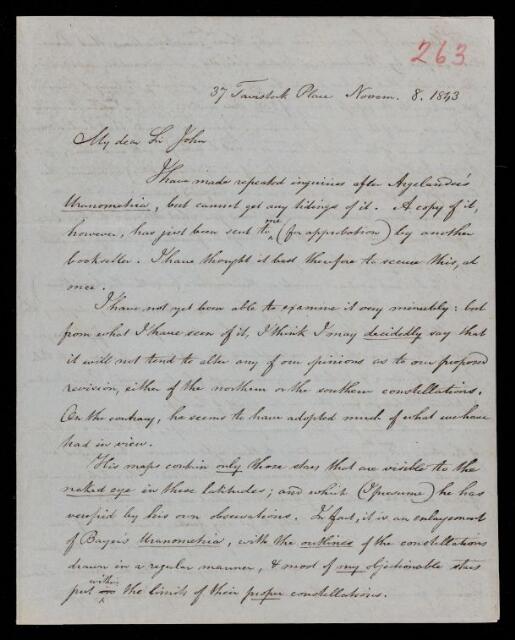 263
37 Tavistock Place Novem. 8. 1843
My dear Sir John
I have made repeated inquiries after Argelander's
Uranometria, but cannot get any tidings of it. A copy of it,
however, has just been sent to me (for approbation) by another
bookseller. I have thought it best therefore to secure this, at
once.
I have not yet been able to examine it very minutely: but
from what I have seen of it, I think I may decidedly say that
it will not tend to alter any of our opinions as to our proposed
revision, either of the northern or the southern constellations.
On the contrary, he seems to have adopted much of what we have
had in view.
His maps contain only those stars that are visible to the
naked eye in these latitudes; and which (I presume) he has
verified by his own observations. In fact, it is an enlargement
of Bayer's Uranometria, with the outlines of the constellations
drawn in a regular manner, & most of my objectionable stars
put within the limits of their proper constellations.